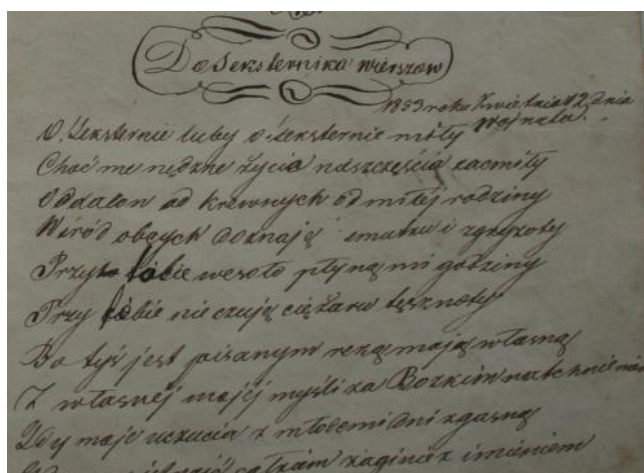 Do Seksternika wierszow
1853 roku Kwietnia 12 dnia
O Seksternie luby o Seksternie miły
Choć me nędzne życia naszczęścia zacmiły
Oddalon od krewnych od miłej rodziny
Wśród obcych doznaję smutku i zgryzoty
Przy tobie wesoło płyną mi godziny
Przy tobie nie czuję ciężaru tęsknoty
Bo tyś jest pisanym ręką moją własną
Z własnéj mojéj myśli za Bozkim natchnieniem
Gdy moje uczucia z młodemi dni zgasną
zaginie z imieniem